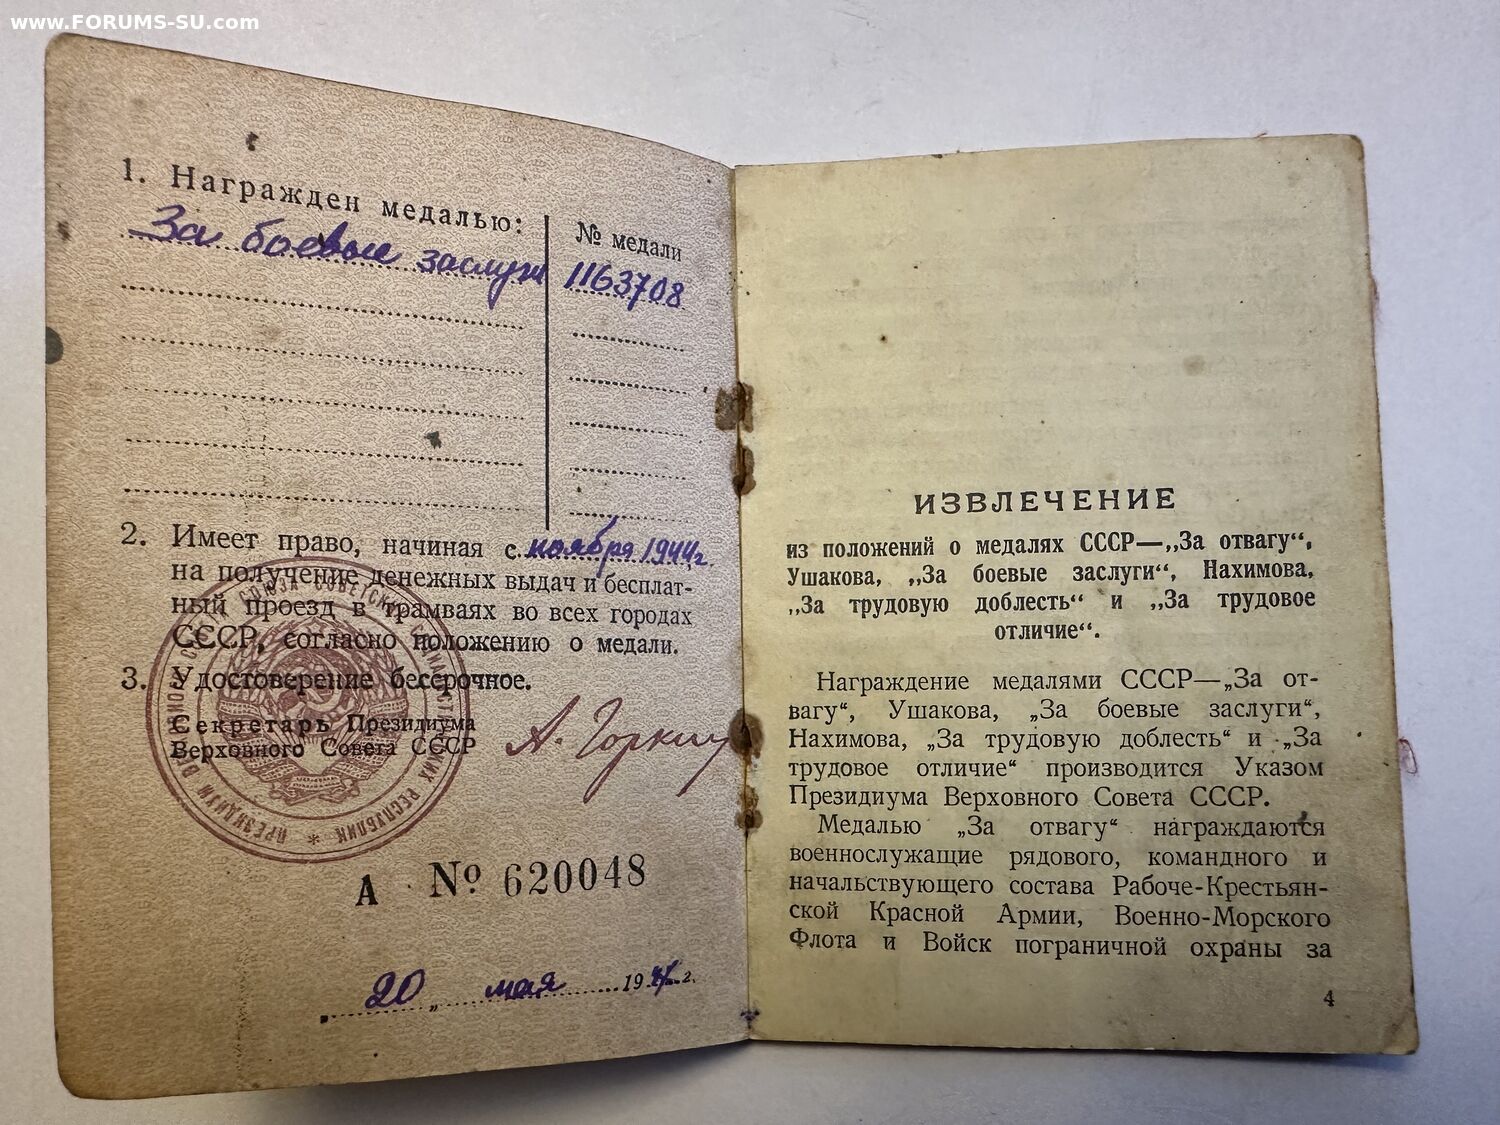 www.FORUMS-SU.com
1. Награжден медалью:
№ медали
За боевые заслуги
1163708
2. Имеет право, начиная с ноября 1944 г.
на получение денежных выдач и бесплат-
ный проезд в трамваях во всех городах
СССР, согласно положению о медали.
3. Удостоверение бессрочное.
Секретарь Президиума
Верховного Совета СССР
А. Горкин
ПРЕЗИДИУМ ВЕРХОВНОГО СОВЕТА СОЮЗА СОВЕТСКИХ СОЦИАЛИСТИЧЕСКИХ РЕСПУБЛИК *
А № 620048
„20„ мая 194 г.
ИЗВЛЕЧЕНИЕ
из положений о медалях СССР—„За отвагу“,
Ушакова, „За боевые заслуги“, Нахимова,
„За трудовую доблесть“ и „За трудовое
отличие“.
Награждение медалями СССР—„За от-
вагу“, Ушакова, „За боевые заслуги“,
Нахимова, „За трудовую доблесть“ и „За
трудовое отличие“ производится Указом
Президиума Верховного Совета СССР.
Медалью „За отвагу“ награждаются
военнослужащие рядового, командного и
начальствующего состава Рабоче-Крестьян-
ской Красной Армии, Военно-Морского
Флота и Войск пограничной охраны за
4